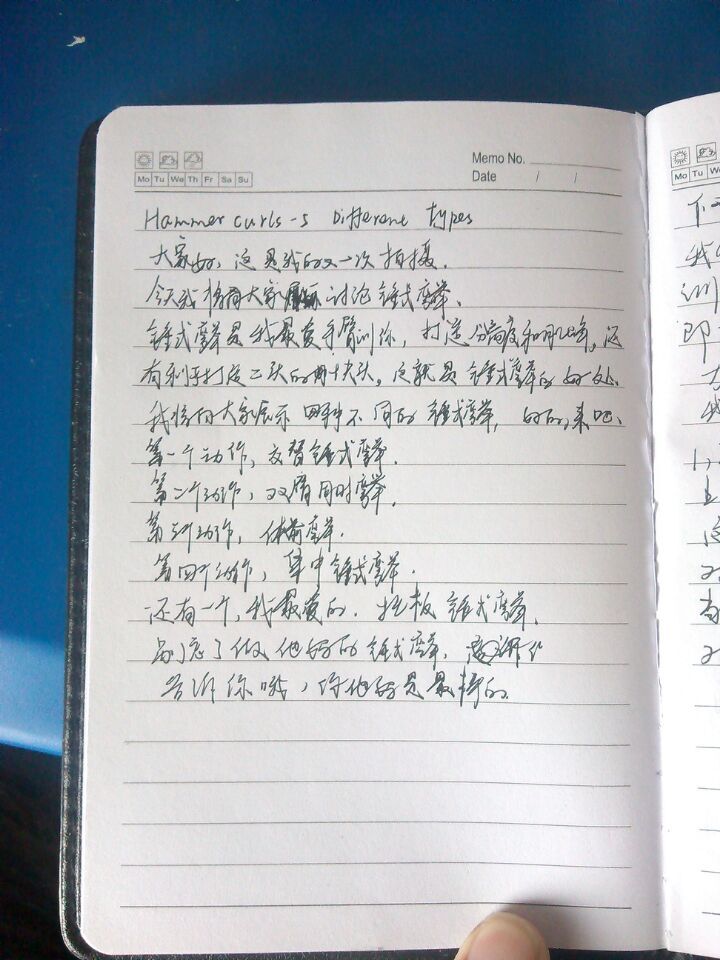 Memo No.
Date / /
Mo Tu We Th Fr Sa Su
Hammer curls-5 Different types
大家好,这是我的又一次拍摄.
今天我将向大家讨论锤式弯举.
锤式弯举是我最爱手臂训练,打造分离度和肌峰,还
有利于打造二头的,这就是锤式弯举的好处.
我将向大家展示四种不同的锤式弯举,好的,来吧.
第一个动作,交替锤式弯举.
第二个动作,双臂同时弯举.
第三个动作,体前弯举.
第四个动作,集中锤式弯举.
还有一个,我最爱的.托板锤式弯举.
别忘了做他妈的锤式弯举,
告诉你哦,你他妈是最棒的.
下
我
训
即
我
1.